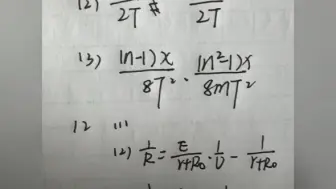 (2) 2T 2T
(3) (n-1)x / 8T² · (n²-1)x / 8mT²
12 (1)
(2) 1/R = E/(r+R₀) · 1/U - 1/(r+R₀)